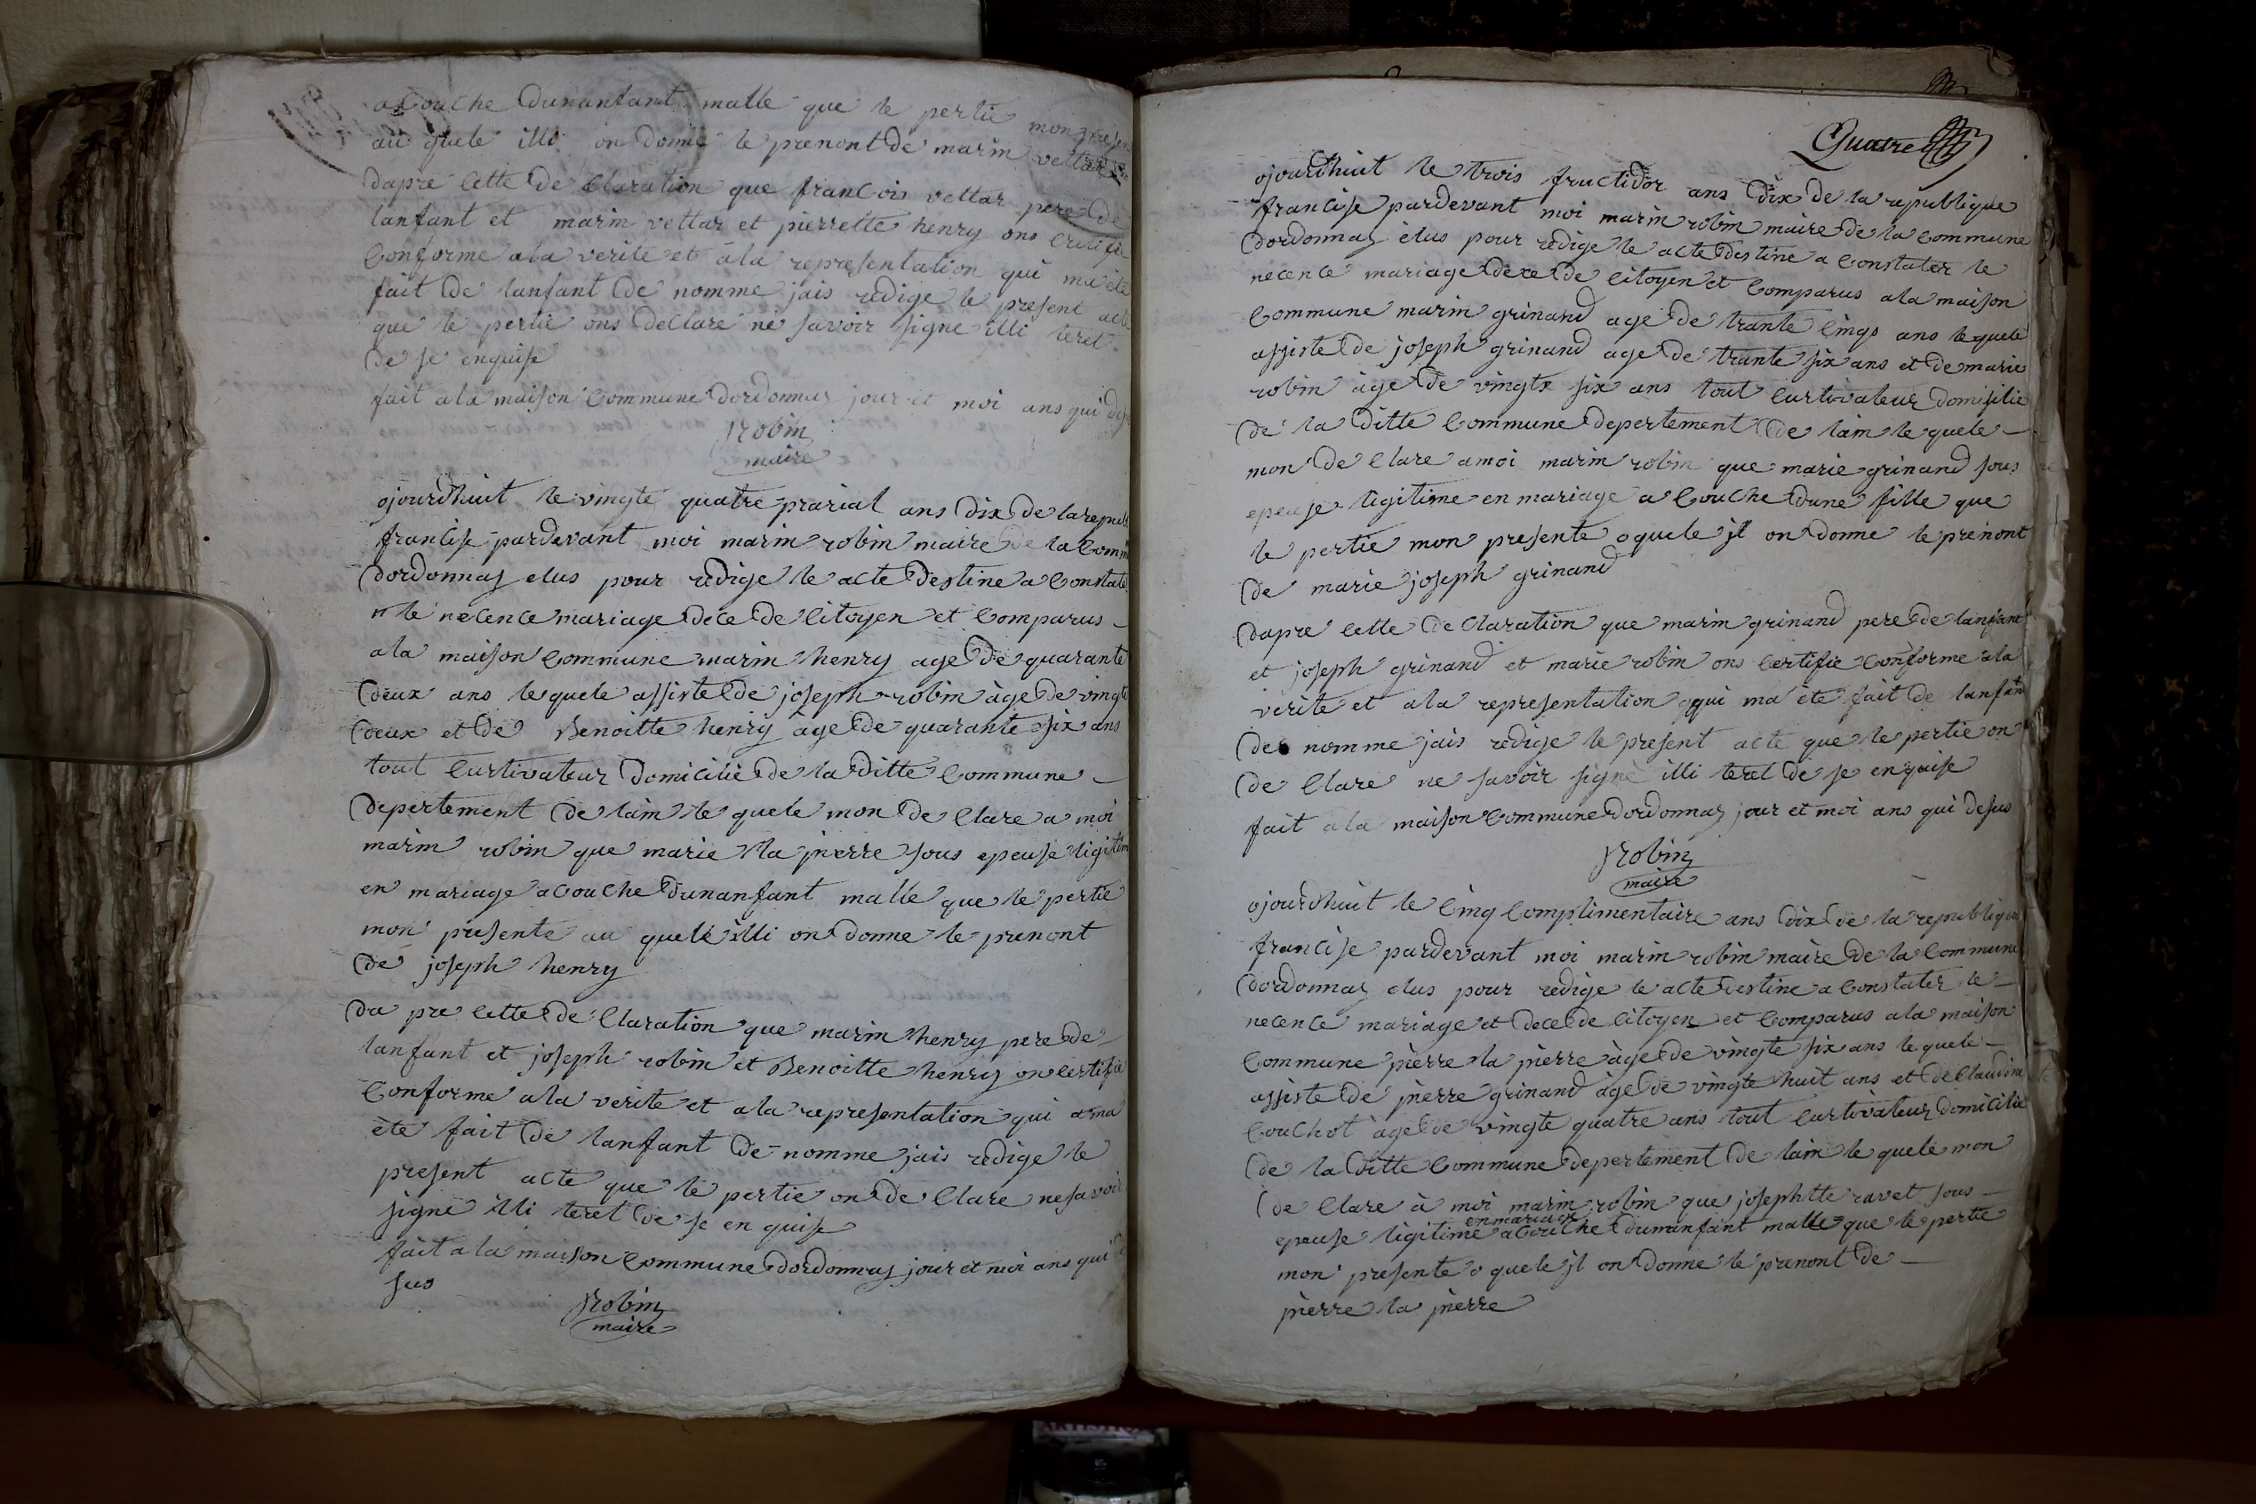 a Couche dunanfant malle que le pertie mon presen
au quele illi on donne le prenont de marin vettar
dapre Cette de Claration que francois vettar pere de
lanfant et marin vettar et pierrette henry ons Certifie
Conforme a la verite et a la representation qui ma été
fait de lanfant de nomme jais redige le present acte
que le pertie ons declare ne savoir signe illi teret
de se enquise
fait a la maison Commune dordonnaz jour et moi ans qui
Robin
maire
ojourdhuit le vingte quatre prarial ans dix de la repub
francise pardevant moi marin robin maire de la Comm
dordonnaz elus pour redige le acte destine a Constate
r le necence mariage dece de Citoyen et Comparus
a la maison Commune marin henry age de quarante
deux ans le quele assiste de joseph robin àge de vingte
deux et de Benoitte henry àge de quarante six ans
tout Curtivateur domicilie de la ditte Commune
depertement de lain le quele mon de Clare a moi
marin robin que marie la pierre sous epeuse ligitim
en mariage a Couche dunanfant malle que le pertie
mon presente au quele illi on donne le prenont
de joseph henry
da pre Cette de Claration que marin henry pere de
lanfant et joseph robin et Benoitte henry on Certifie
Conforme a la verite et a la representation qui a ma
ète fait de lanfant de nomme jais redige le
present acte que le pertie on de Clare ne savoir
signe illi teret de se en quise
fait a la maison Commune dordonnaz jour et moi ans qui de
sus
Robin
maire
Quatre
ojourdhuit le trois fructidor ans dix de la republique
francise pardevant moi marin robin maire de la Commune
dordonnaz èlus pour redige le acte destine a Constater le
necence mariage dece de Citoyen et Comparus a la maison
Commune marin grinand age de trante Cinqs ans le quele
assiste de joseph grinand age de trante six ans et de marie
robin àge de vingte six ans tout Curtivateur domisilie
de la ditte Commune depertement de lain le quele
mon de Clare a moi marin robin que marie grinand sous
epeuse ligitime en mariage a Couche dune fille que
le pertie mon presente o quele jl on donne le prenont
de marie joseph grinand
dapre Cette de Claration que marin grinand pere de lanfant
et joseph grinand et marie robin ons Certifie Conforme a la
verite et a la representation qui ma ète fait de lanfan
de nomme jais redige le present acte que le pertie on
de Clare ne savoir signè illi teret de se enquise
fait a la maison Commune dordonnaz jour et moi ans qui desus
Robin
maire
ojourdhuit le Cinq Complimentaire ans dix de la republique
francise pardevant moi marin robin maire de la Commune
dordonnaz elus pour redige le acte destine a Constater le
necence mariage et dece de Citoyen et Comparus a la maison
Commune pierre la pierre àge de vingte six ans le quele
assiste de pierre grinand àge de vingte huit ans et de Claudine
Couchot àge de vingte quatre ans tout Curtivateur domicilie
de la ditte Commune depertement de lain le quele mon
de Clare à moi marin robin que josephtte ravet sous
en mariaix
epeuse ligitime a Couche dunanfant malle que le pertie
mon presente o quele jl on donne le prenont de
pierre la pierre